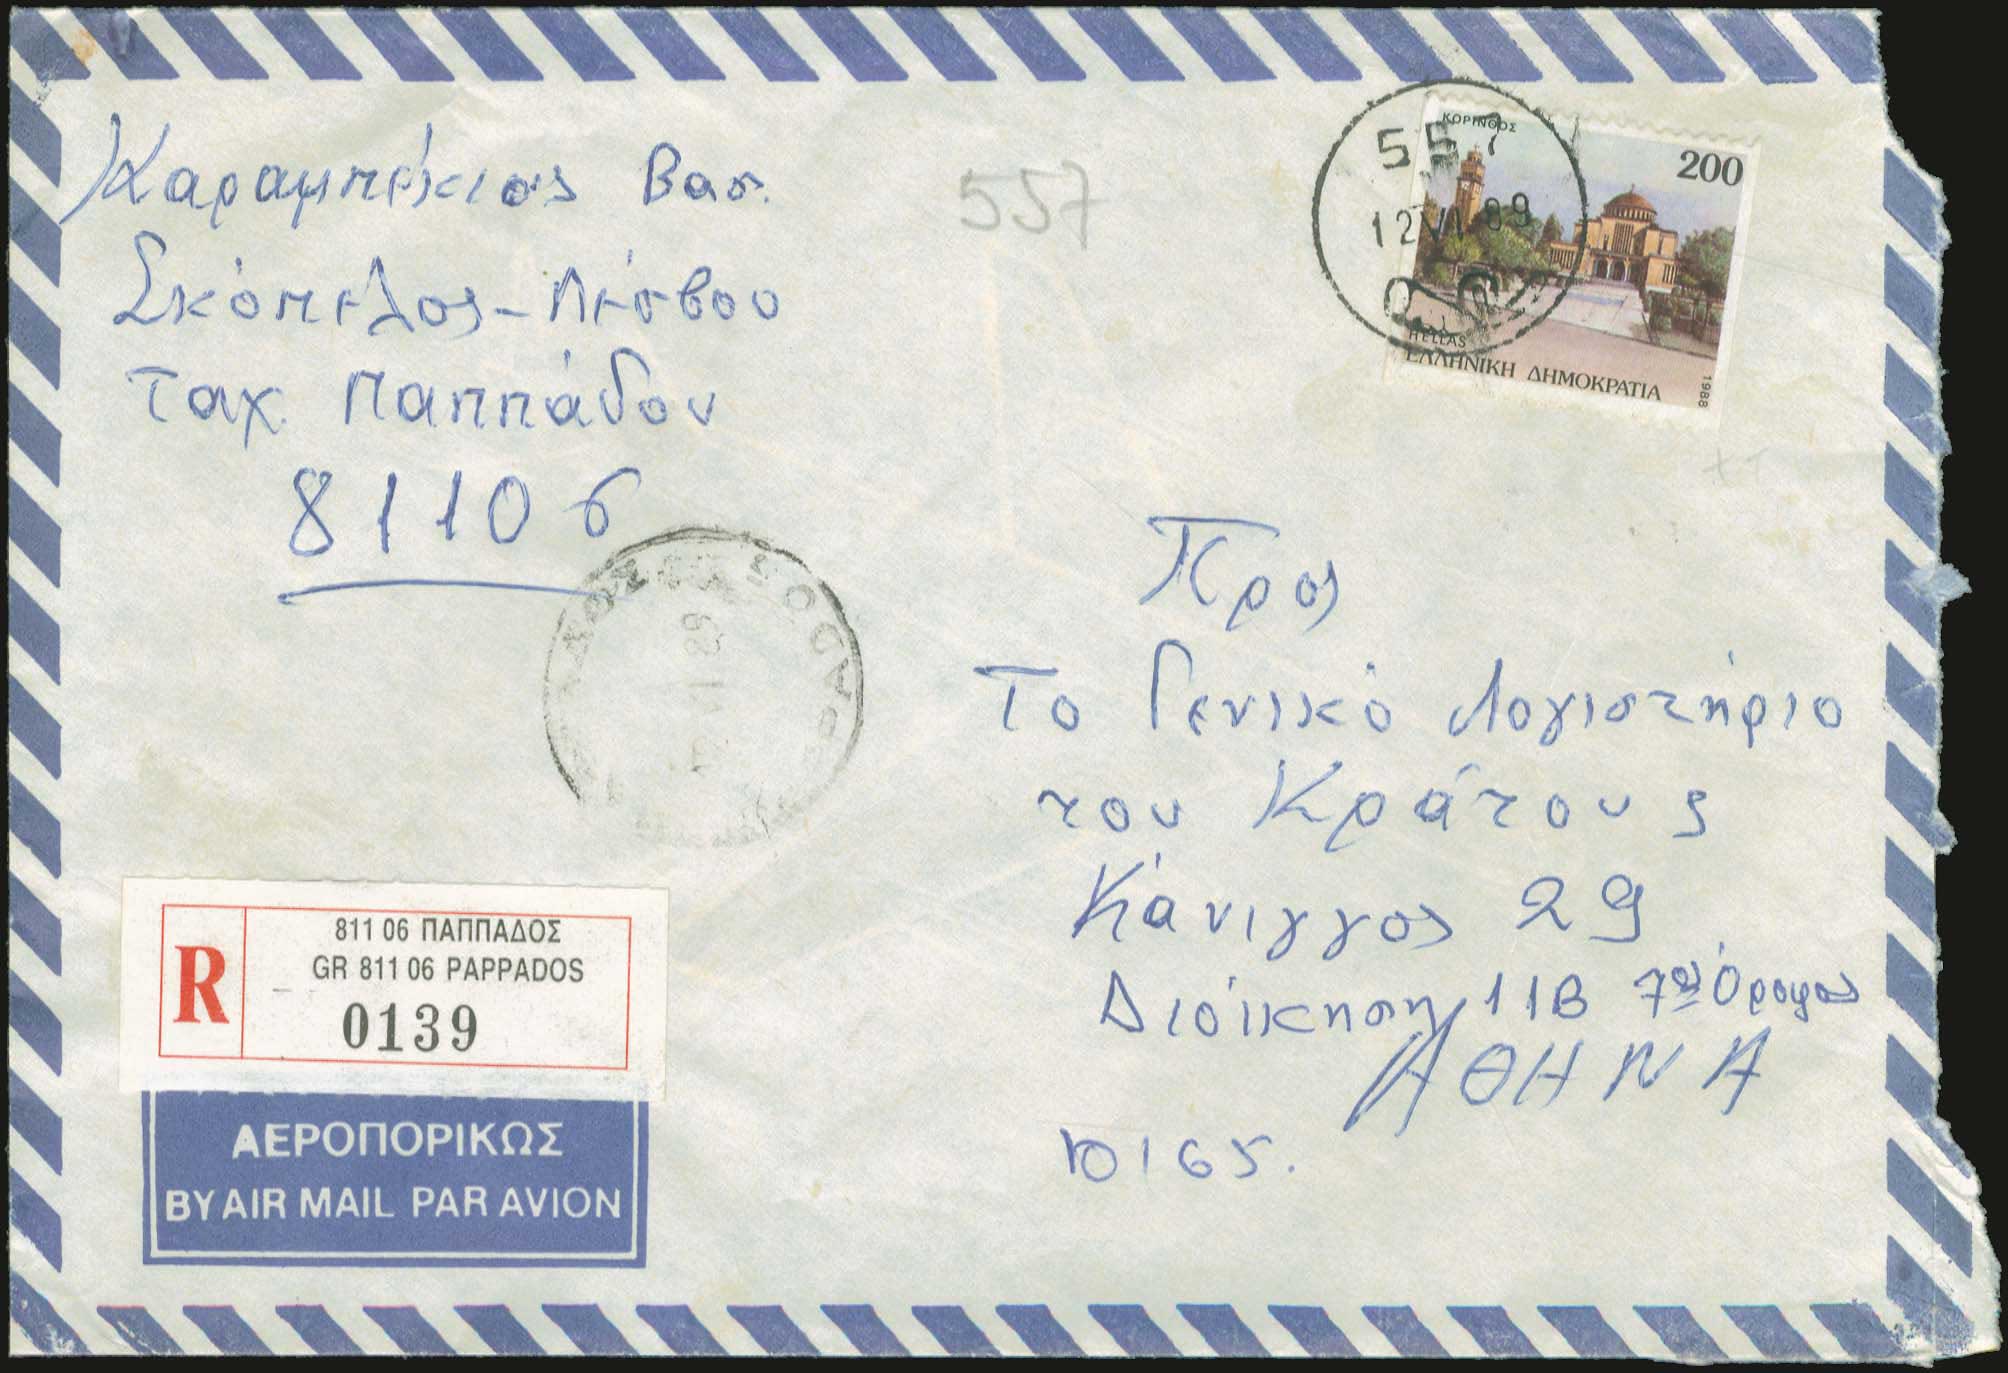 Καραμπέκιος Βασ.
Σκόπελος - Λέσβου
Ταχ. Παππάδου
81106
557
ΚΟΡΙΝΘΟΣ
200
557
12 VI 89
HELLAS
ΕΛΛΗΝΙΚΗ ΔΗΜΟΚΡΑΤΙΑ
1988
Προς
Το Γενικό Λογιστήριο
του Κράτους
Κάνιγγος 29
Διοίκηση 11Β 7ος Όροφος
ΑΘΗΝΑ
10165.
R
811 06 ΠΑΠΠΑΔΟΣ
GR 811 06 PAPPADOS
0139
ΑΕΡΟΠΟΡΙΚΩΣ
BY AIR MAIL PAR AVION